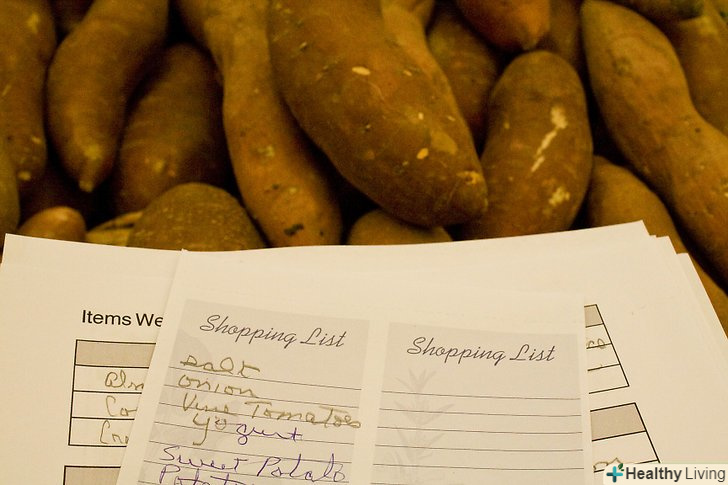 Items We
Shopping List
salt
onion
Vine Tomatoes
yogurt
Sweet Potato
Potato
Shopping List
Healthy Living